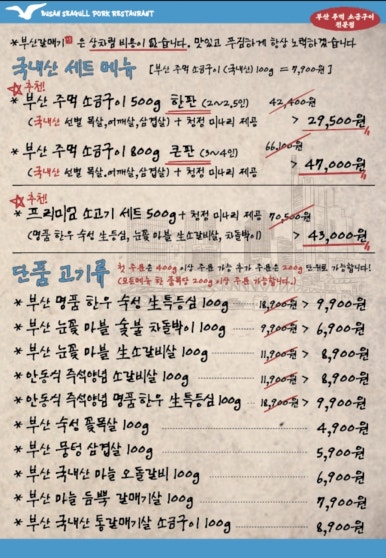 BUSAN SEAGULL PORK RESTAURANT
부산 주먹 소금구이
전문점
*부산갈매기 은 상차림 비용이 없습니다. 맛있고 푸짐하게 항상 노력하겠습니다
국내산 세트 메뉴 [부산 주먹 소금구이 (국내산) 100g = 7,900원]
추천!
* 부산 주먹 소금구이 500g 한판 (2~2.5인) 42,400원
(국내산 선별 목살,어깨살,삼겹살) + 청정 미나리 제공 > 29,500원
* 부산 주먹 소금구이 800g 큰판 (3~4인) 66,100원
(국내산 선별 목살,어깨살,삼겹살) + 청정 미나리 제공 > 47,000원
추천!
* 프리미엄 소고기 세트 500g + 청정 미나리 제공 70,500원
(명품 한우 숙성 生등심, 눈꽃 마블 生소갈비살, 차돌박이) > 45,000원
단품 고기류 첫 주문은 400g 이상 주문 가능 추가 주문은 200g 단위로 가능합니다!
(모든메뉴 한 품목당 200g 이상 주문 가능합니다.)
* 부산 명품 한우 숙성 生특등심 100g 18,900원 > 9,900원
* 부산 눈꽃 마블 술불 차돌박이 100g 9,900원 > 6,900원
* 부산 눈꽃 마블 生소갈비살 100g 11,900원 > 8,900원
* 안동식 즉석양념 소갈비살 100g 11,900원 > 8,900원
* 안동식 즉석양념 명품한우 生특등심 100g 18,900원 > 9,900원
* 부산 숙성 꽃목살 100g 4,900원
* 부산 뭉텅 삼겹살 100g 5,900원
* 부산 국내산 마늘 오돌갈비 100g 6,900원
* 부산 마늘 듬뿍 갈매기살 100g 7,900원
* 부산 국내산 통갈매기살 소금구이 100g 8,900원